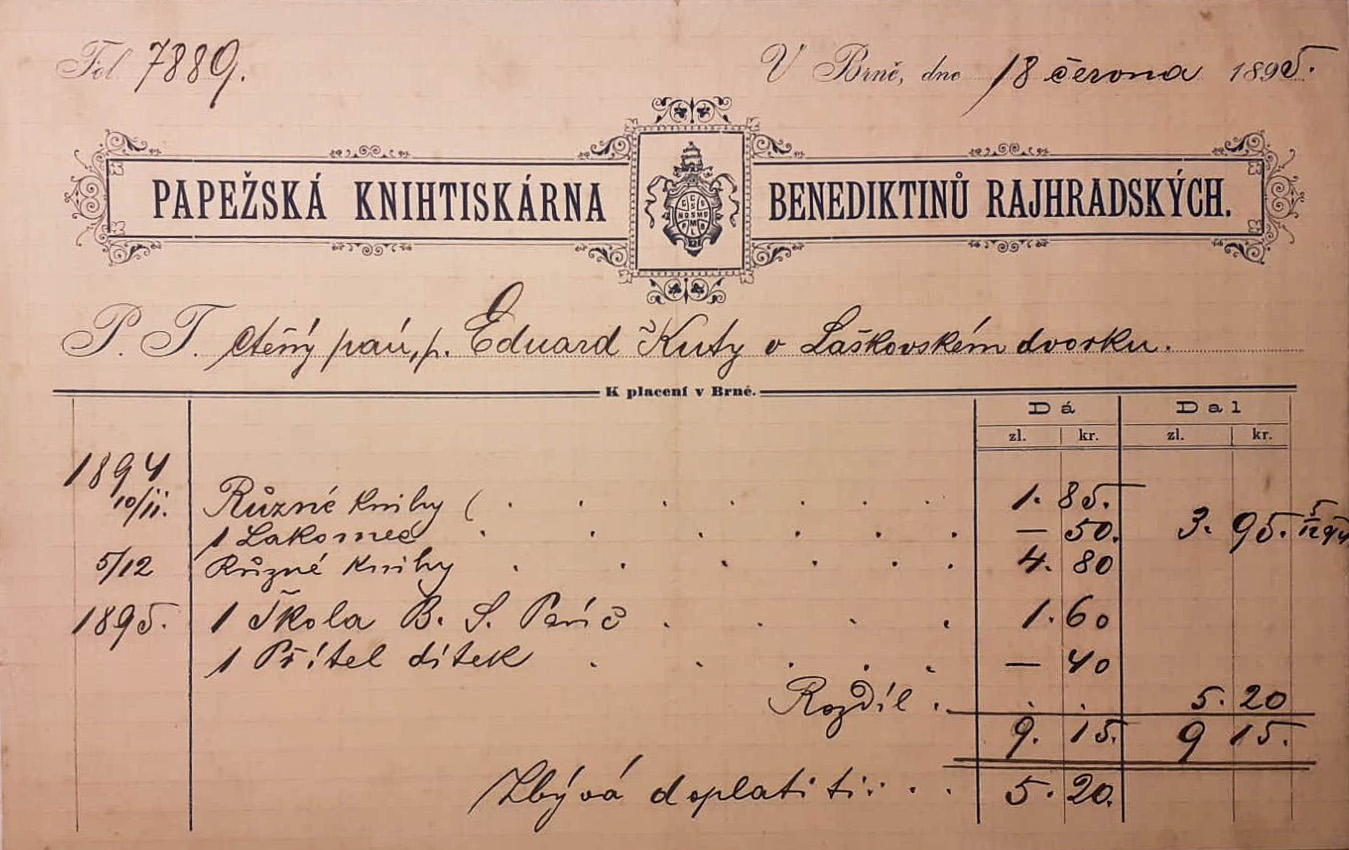 Fol 7889.
V Brně, dne 18 června 1895.
PAPEŽSKÁ KNIHTISKÁRNA BENEDIKTINŮ RAJHRADSKÝCH.
P. T. ctěný pan, p. Eduard Kutý v Laškovském dvorku.
K placení v Brně.
Dá Dal
zl. kr. zl. kr.
1894
10/11. Různé knihy 1. 85.
1 Lakomec — 50. 3. 95. 5/12 94
5/12 Různé knihy 4. 80
1895. 1 Škola B. S. P. 1. 60
1 Přítel dítek — 40
Rozdíl . . . 5. 20
9. 15. 9 15.
Zbývá doplatiti . . . 5. 20.